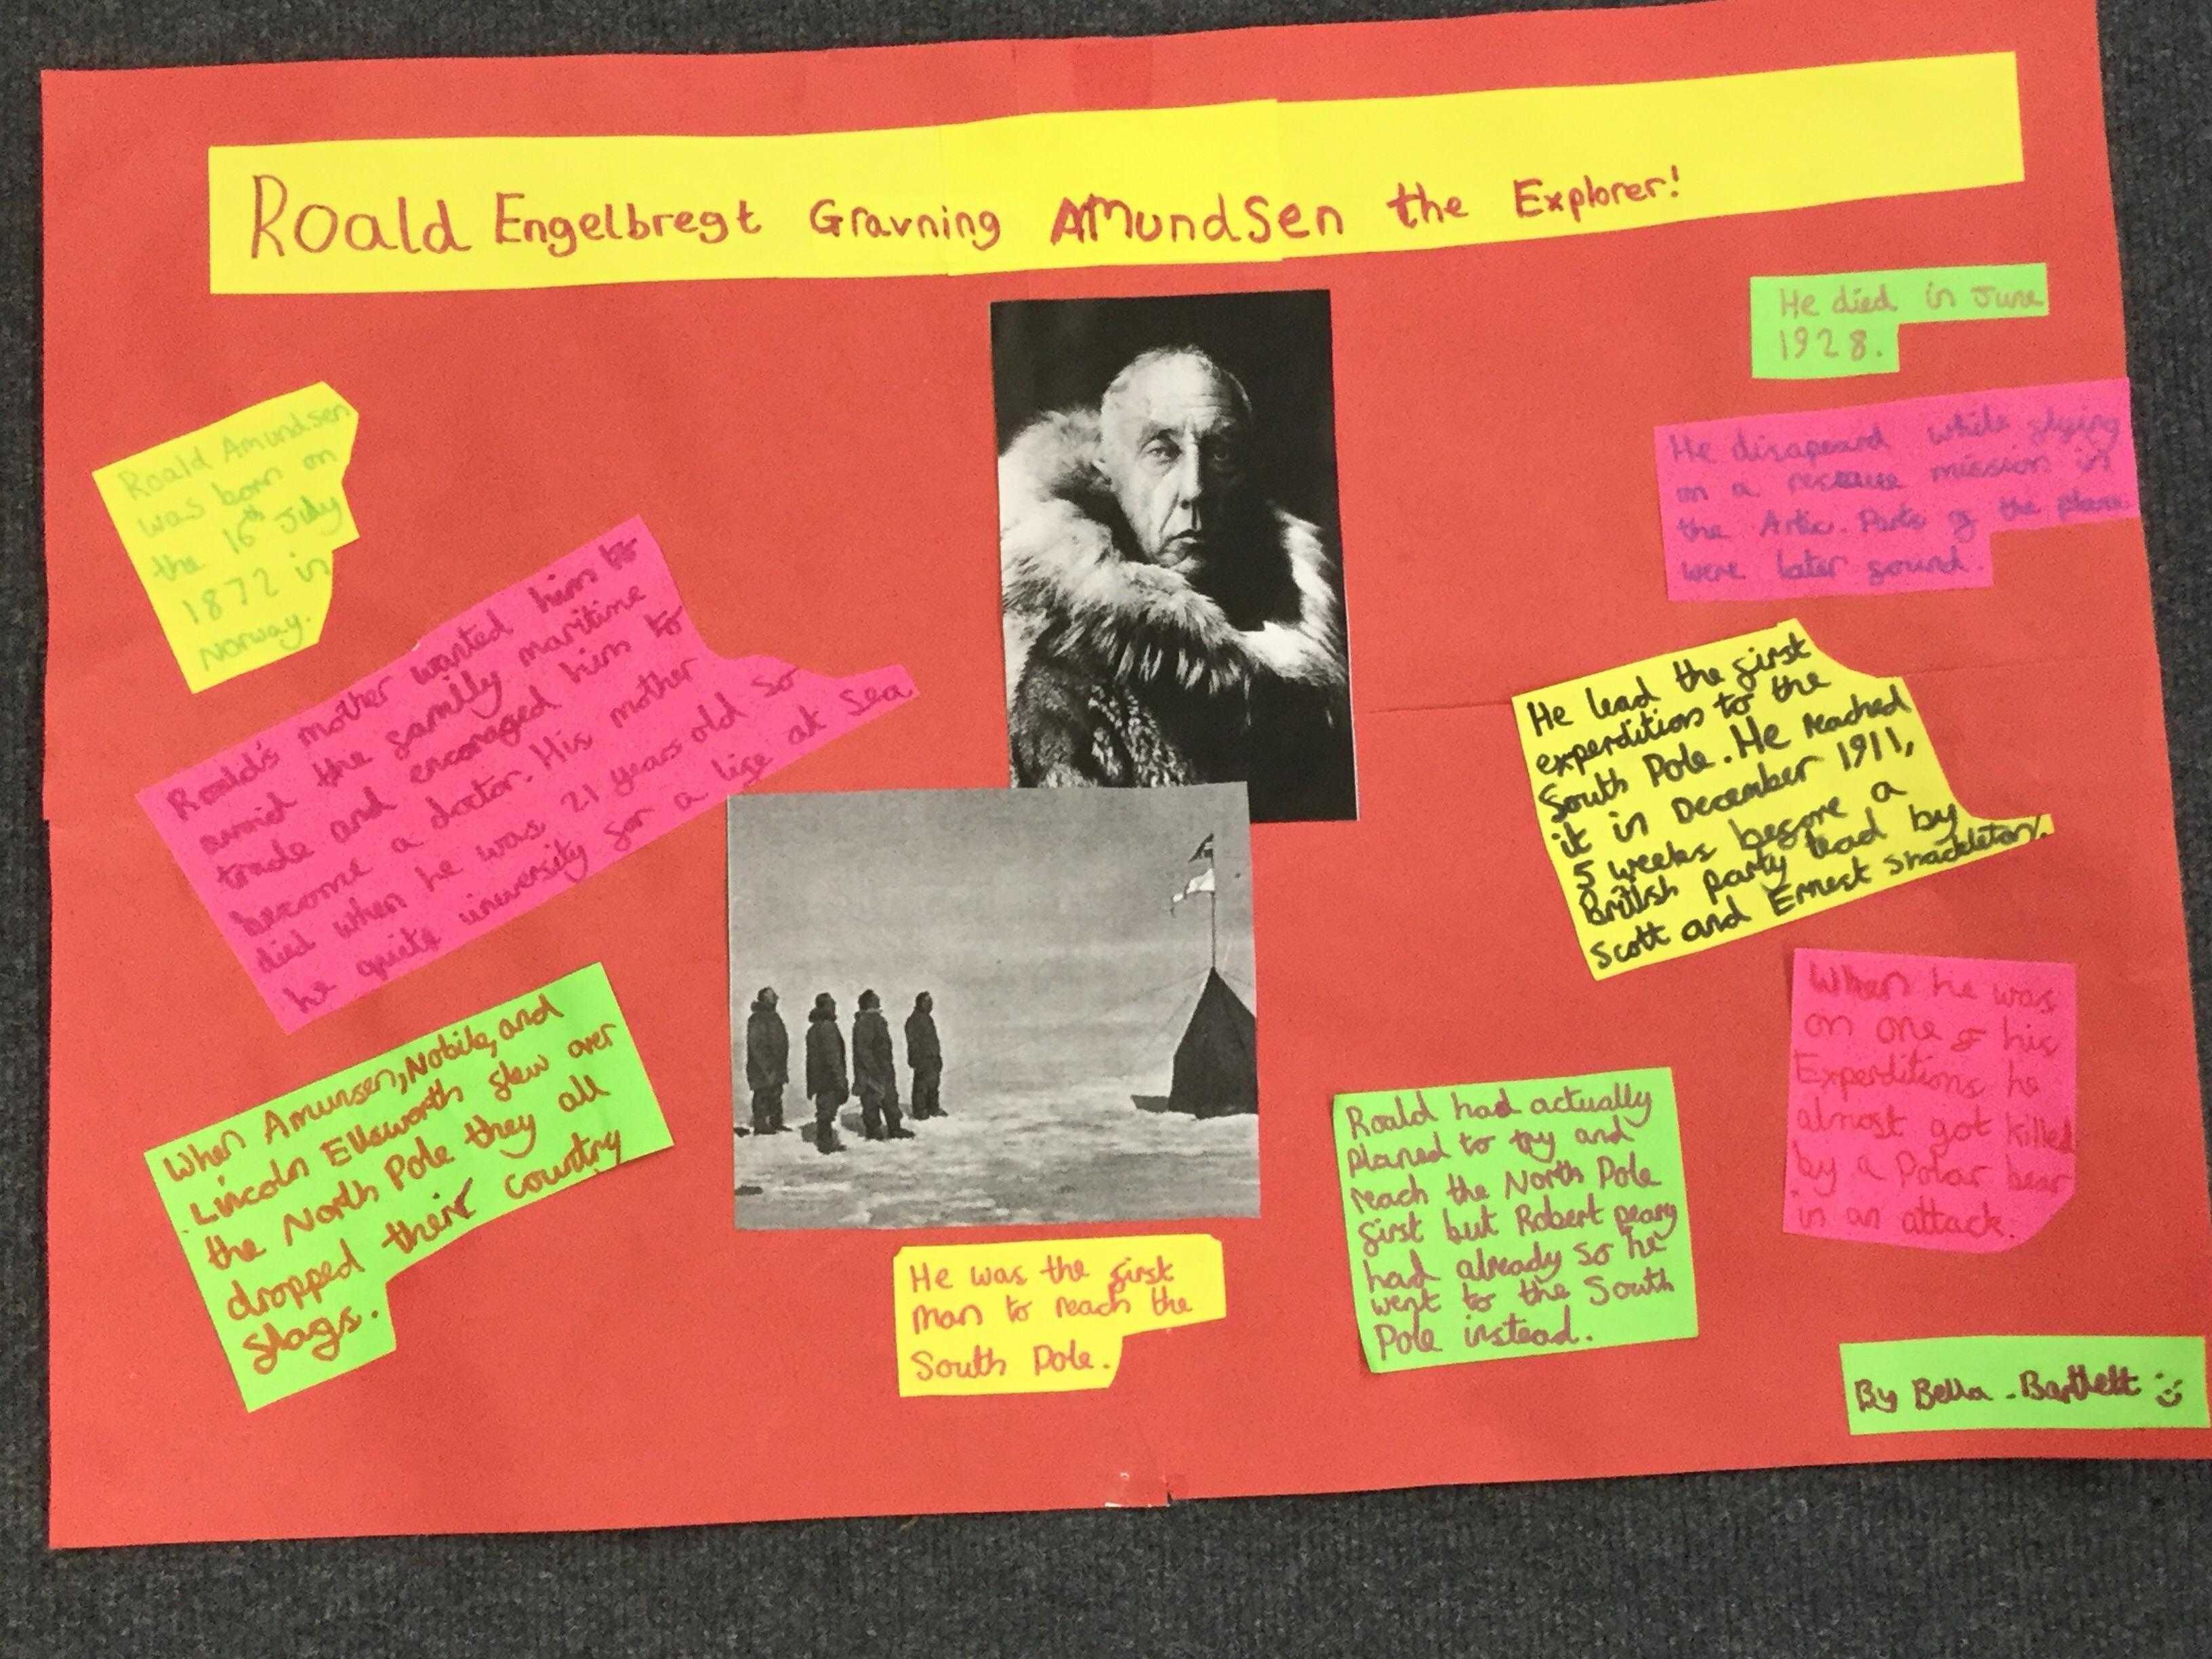 Roald Engelbregt Gravning Amundsen the Explorer!
Roald Amundsen
was born on
the 16th July
1872 in
Norway.
Roald's mother wanted him to
avoid the family maritime
trade and encoraged him to
become a doctor. His mother
died when he was 21 years old so
he quits university for a life at sea
When Amunsen, Nobile, and
Lincoln Ellsworth flew over
the North Pole they all
dropped their country
flags.
He was the first
man to reach the
South Pole.
He died in June
1928.
He disapeard while flying
on a rescue mission in
the Artic. Parts of the plane
were later found.
He lead the first
experdition to the
South Pole. He reached
it in December 1911,
5 weeks before a
British party lead by
Scott and Ernest Shackleton.
When he was
on one of his
Experditions he
almost got killed
by a Polar bear
in an attack.
Roald had actually
planed to try and
reach the North Pole
first but Robert peary
had already so he
went to the South
Pole instead.
By Bella - Bartlett